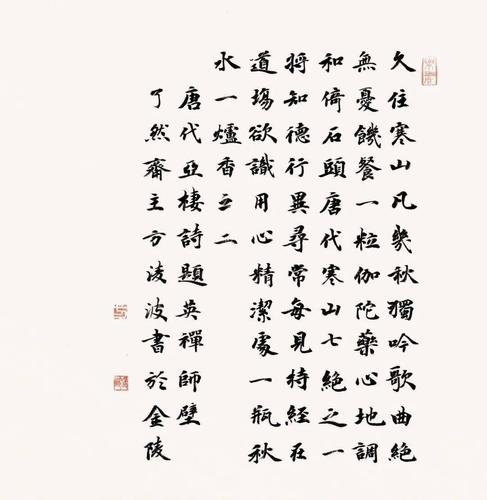 久住寒山凡幾秋獨吟歌曲絕
無憂饑餐一粒伽陀藥心地調
和倚石頭唐代寒山七絕之一
將知德行異尋常每見持經在
道場欲識用心精潔處一瓶秋
水一爐香之二
唐代亞棲詩題英禪師壁
了然齋主方凌波書於金陵